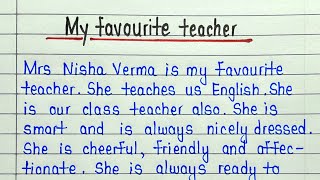 My favourite teacher
Mrs Nisha Verma is my favourite
teacher. She teaches us English. She
is our class teacher also. She is
smart and is always nicely dressed.
She is cheerful, friendly and affec-
tionate. She is always ready to